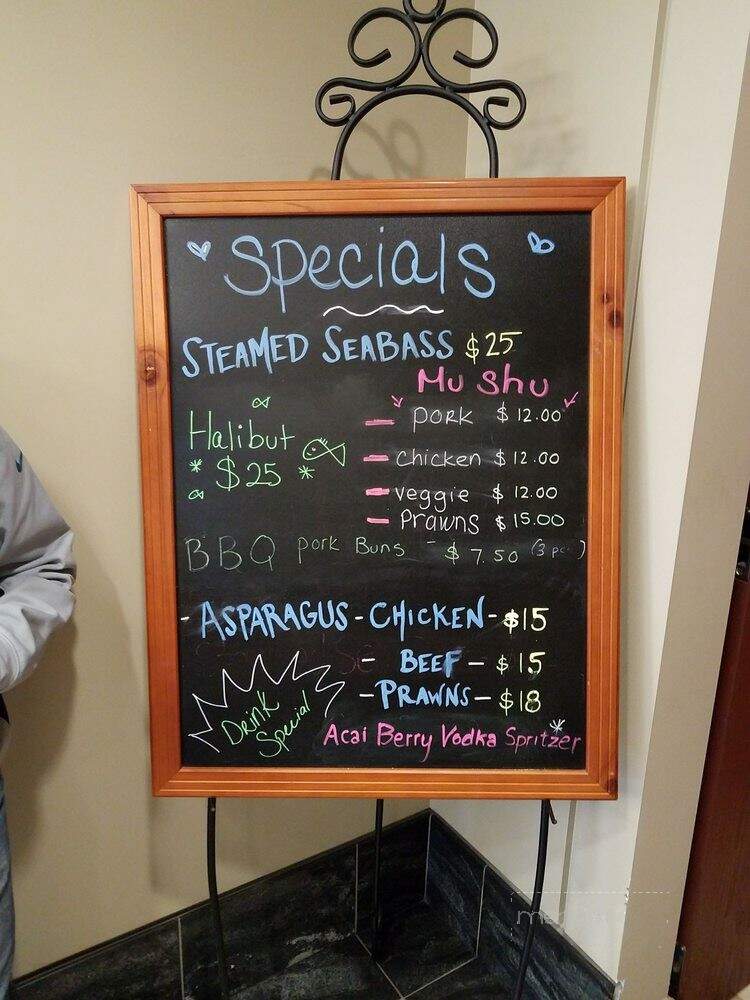 Specials
STEAMED SEABASS $25
Mu Shu
Halibut
* $25 *
- pork $12.00
- chicken $12.00
- veggie $12.00
- Prawns $15.00
BBQ pork Buns - $7.50 (3 pc)
- ASPARAGUS - CHICKEN - $15
- BEEF - $15
- PRAWNS - $18
Drink
Special
Acai Berry Vodka Spritzer